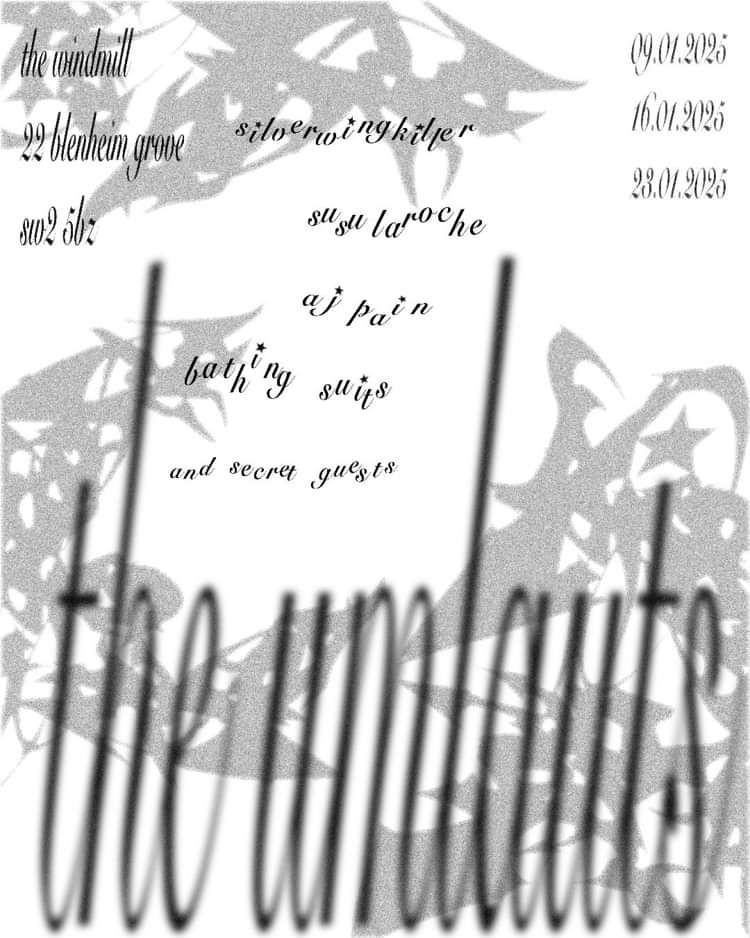 the windmill
22 blenheim grove
sw2 5bz
09.01.2025
16.01.2025
23.01.2025
silverwingkiller
susu laroche
aj pain
bathing suits
and secret guests
the umlauts